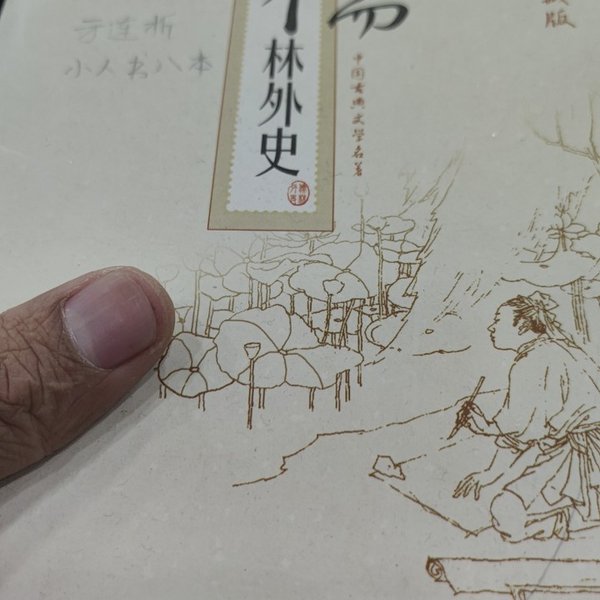 于连析
小人书八本
儒
林外史
中国古典文学名著
版